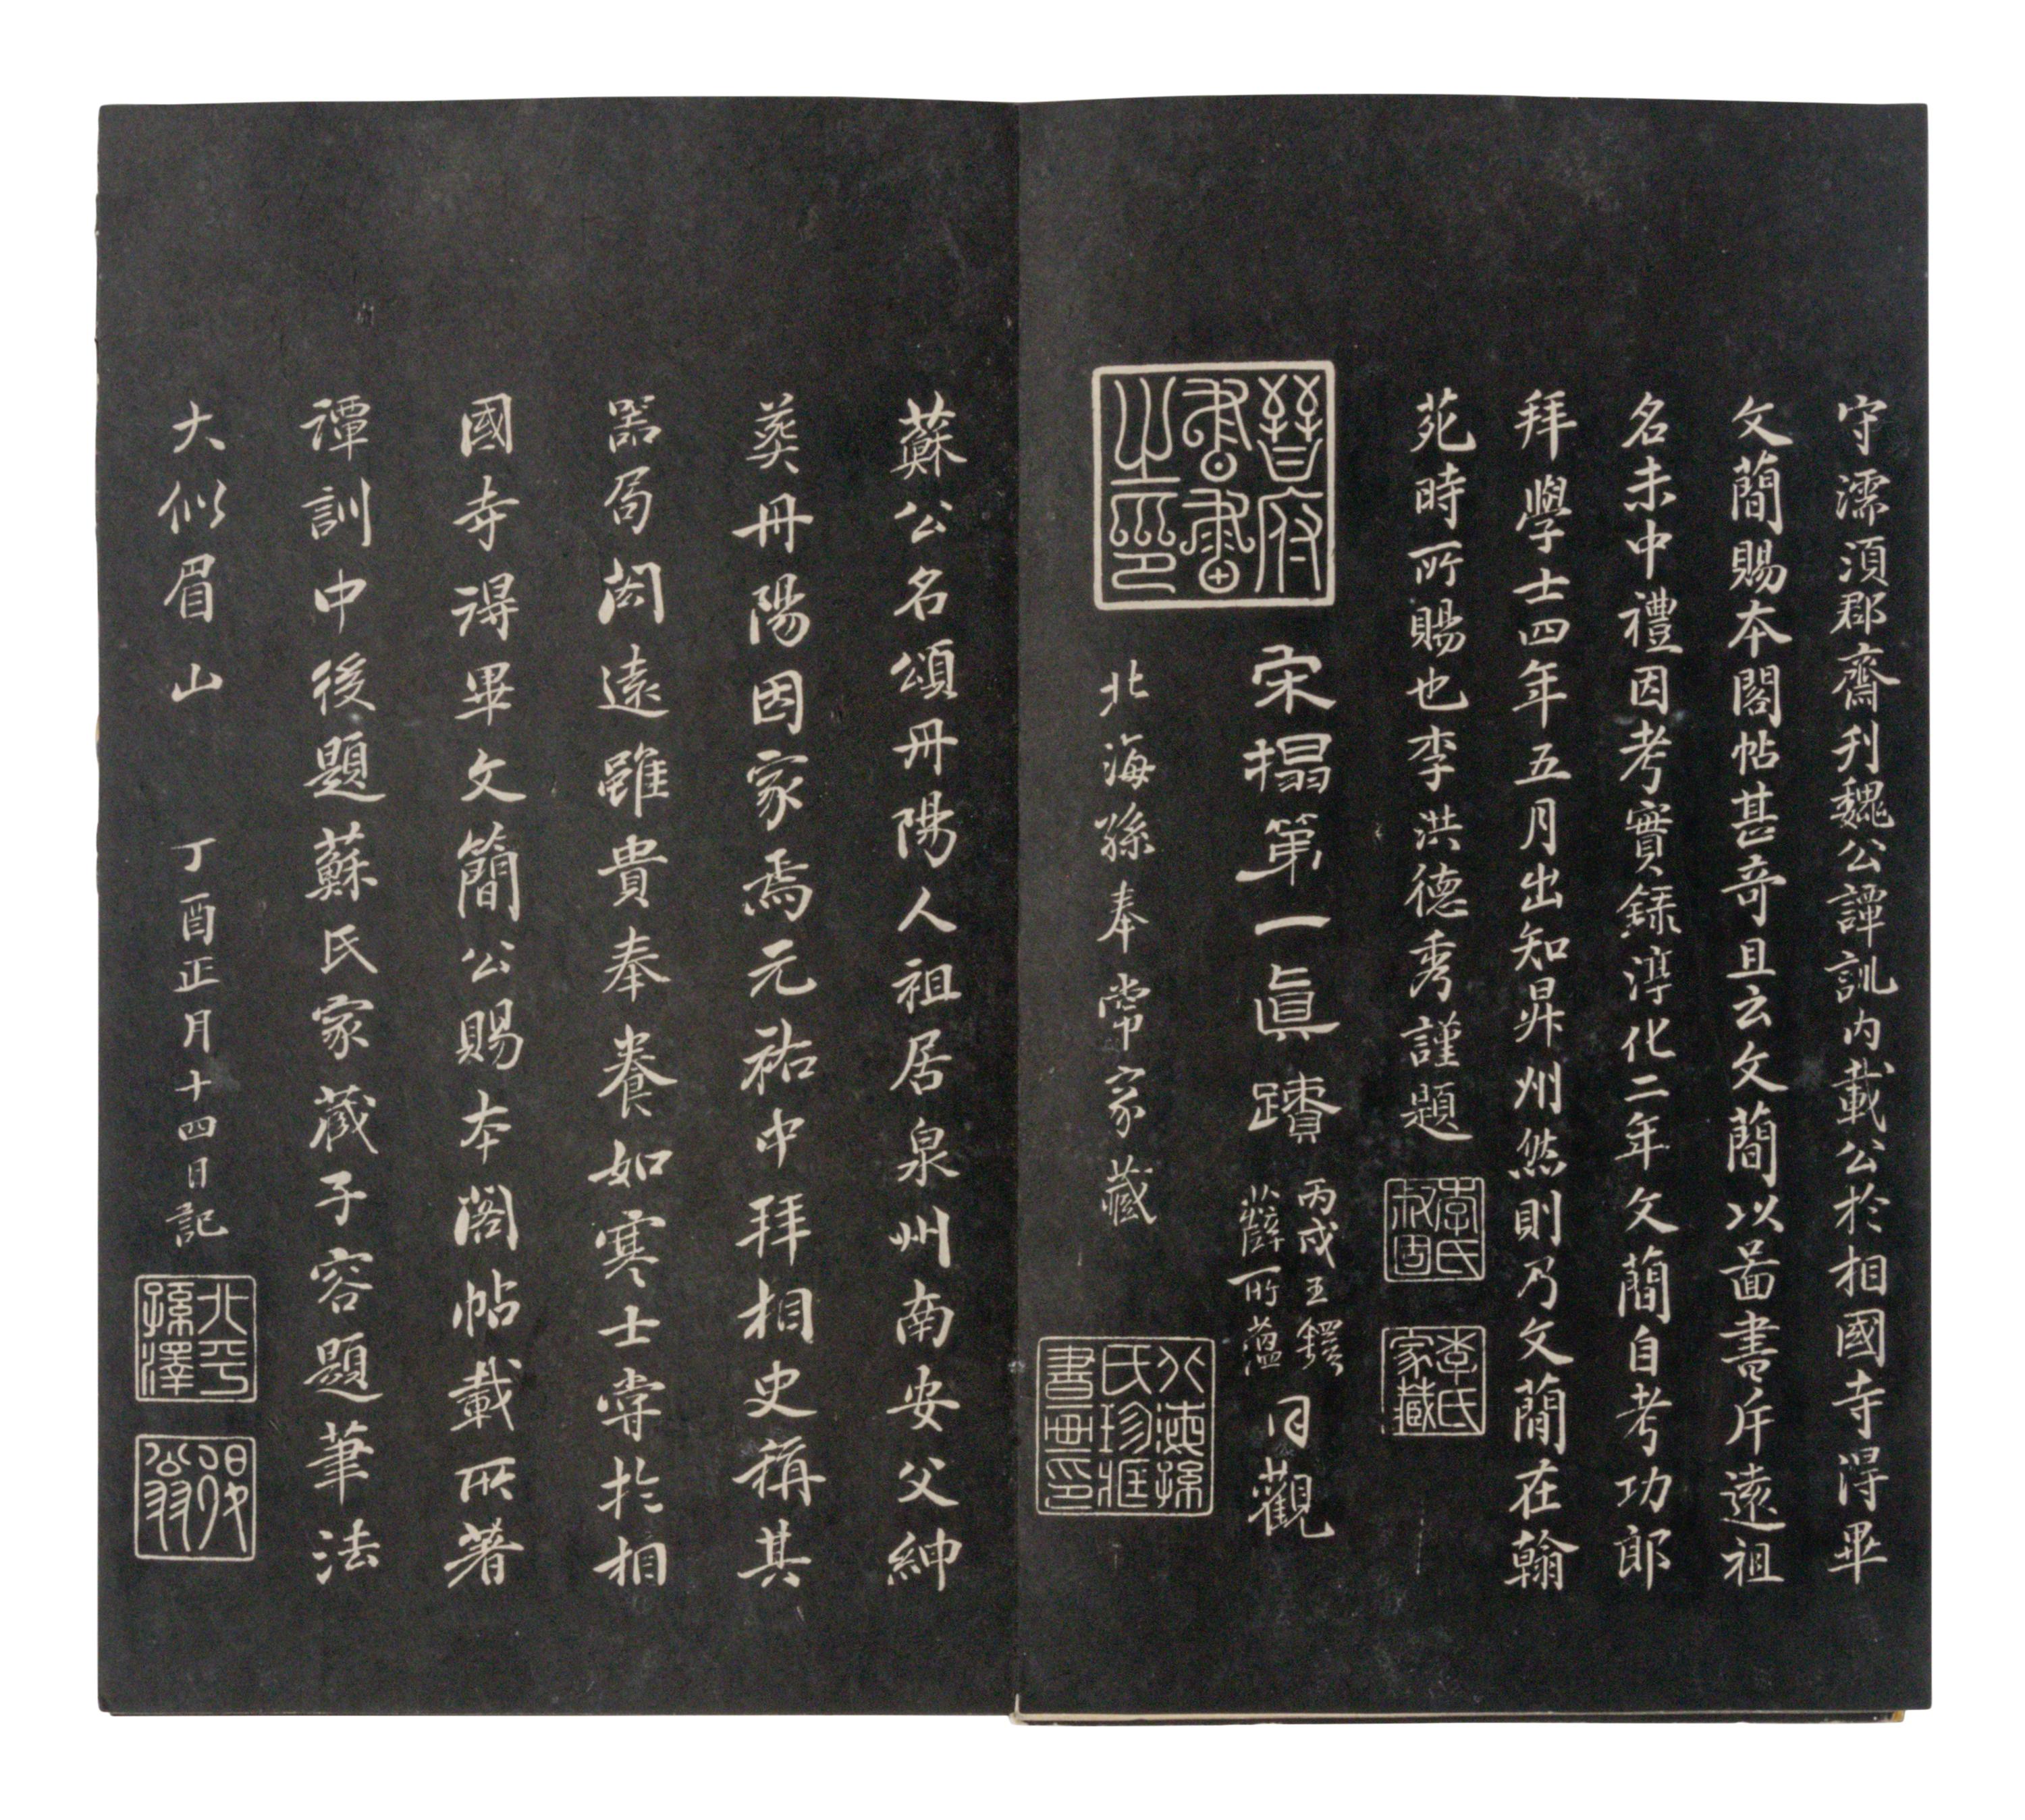 守濡湏郡齋刋魏公譚訓内載公於相國寺得畢
文蕑賜本閣帖甚奇且云文蕑以啚書斥遠祖
名未中禮因考實録淳化二年文蕑自考功郎
拜學士四年五月出知昇州然則乃文蕑在翰
苑時所賜也李洪德秀謹題
李氏家藏
晉府書畫之印
宋搨第一眞蹟
丙戌王鐸
薛所蘊
同觀
北海孫奉常家藏
北海孫氏珍藏書畫印
蘇公名頌丹陽人祖居泉州南安父紳
葬丹陽因家焉元祐中拜相史稱其
器局閎遠雖貴奉養如寒士嘗於相
國寺得畢文簡公賜本閣帖載所著
譚訓中後題蘇氏家藏子容題筆法
大似眉山
丁酉正月十四日記
北平孫澤
退翁